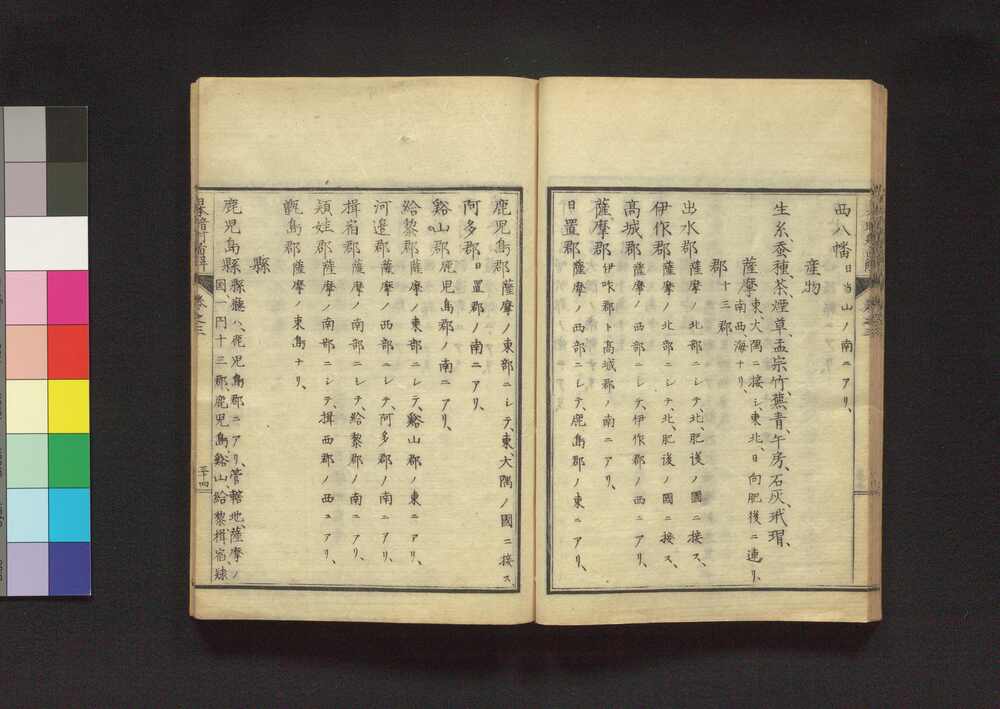 西八幡日当山ノ南ニアリ、
産物
生糸、蚕種、茶、煙草、孟宗竹、蕪青、午房、石灰、玳瑁、
薩摩東、大隅ニ接シ、東北、日向肥後ニ連リ、
南西、海ナリ、
郡十三郡、
出水郡薩摩ノ北部ニシテ、北、肥後ノ國ニ接ス、
伊作郡薩摩ノ北部ニシテ、北、肥後ノ國ニ接ス、
髙城郡薩摩ノ西部ニシテ、伊作郡ノ西ニアリ、
薩摩郡伊咋郡ト髙城郡ノ南ニアリ、
日置郡薩摩ノ西部ニシテ、鹿島郡ノ東ニアリ、
鹿児島郡薩摩ノ東部ニシテ、東、大隅ノ國ニ接ス、
阿多郡日置郡ノ南ニアリ、
谿山郡鹿児島郡ノ南ニアリ、
給黎郡薩摩ノ東部ニシテ、谿山郡ノ東ニアリ、
河邉郡薩摩ノ西部ニシテ、阿多郡ノ南ニアリ、
揖宿郡薩摩ノ南部ニシテ、給黎郡ノ南ニアリ、
頴娃郡薩摩ノ南部ニシテ、揖西郡ノ西ニアリ、
甑島郡薩摩ノ東島ナリ、
縣
鹿児島縣縣廳ハ、鹿児島郡ニアリ、管轄地、薩摩ノ
國一円十三郡、鹿児島、谿山、給黎、揖宿、肄
卷之三
三十四